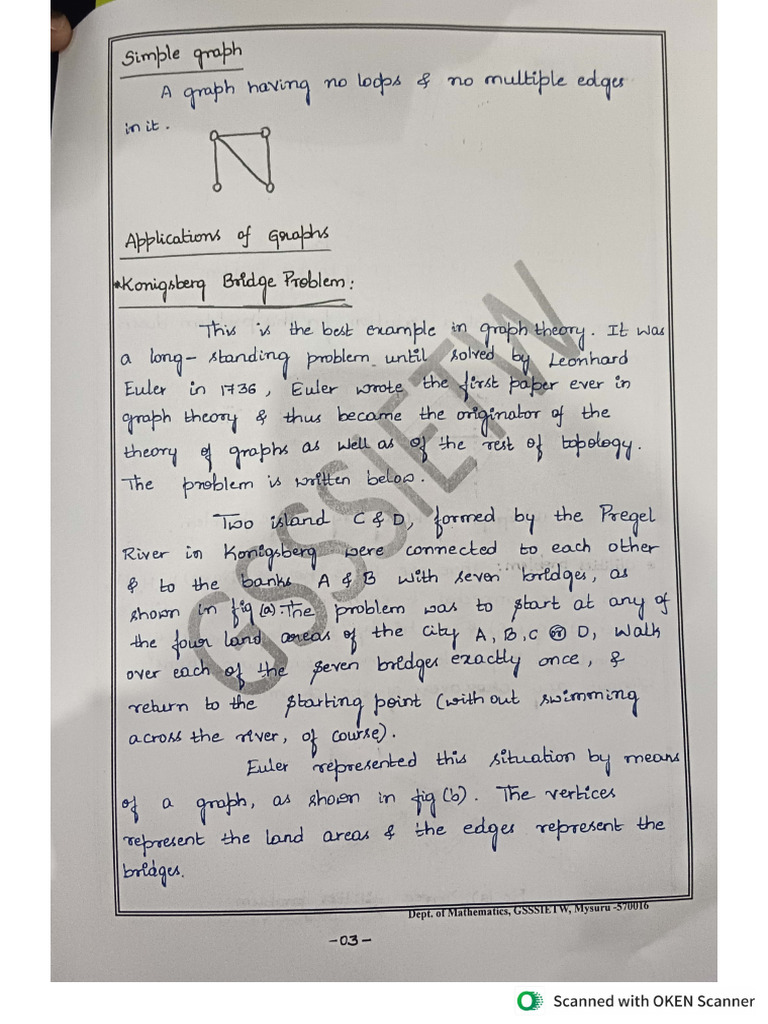 Simple graph
A graph having no loops & no multiple edges
in it.
Applications of Graphs
*Konigsberg Bridge Problem:
This is the best example in graph theory. It was
a long-standing problem until solved by Leonhard
Euler in 1736, Euler wrote the first paper ever in
graph theory & thus became the originator of the
theory of graphs as well as of the rest of topology.
The problem is written below.
Two island C & D, formed by the Pregel
River in Konigsberg were connected to each other
& to the banks A & B with seven bridges, as
shown in fig (a). The problem was to start at any of
the four land areas of the city A, B, C or D, walk
over each of the seven bridges exactly once, &
return to the starting point (without swimming
across the river, of course).
Euler represented this situation by means
of a graph, as shown in fig (b). The vertices
represent the land areas & the edges represent the
bridges.
GSSSIETW
Dept. of Mathematics, GSSSIETW, Mysuru -570016
-03-
Scanned with OKEN Scanner